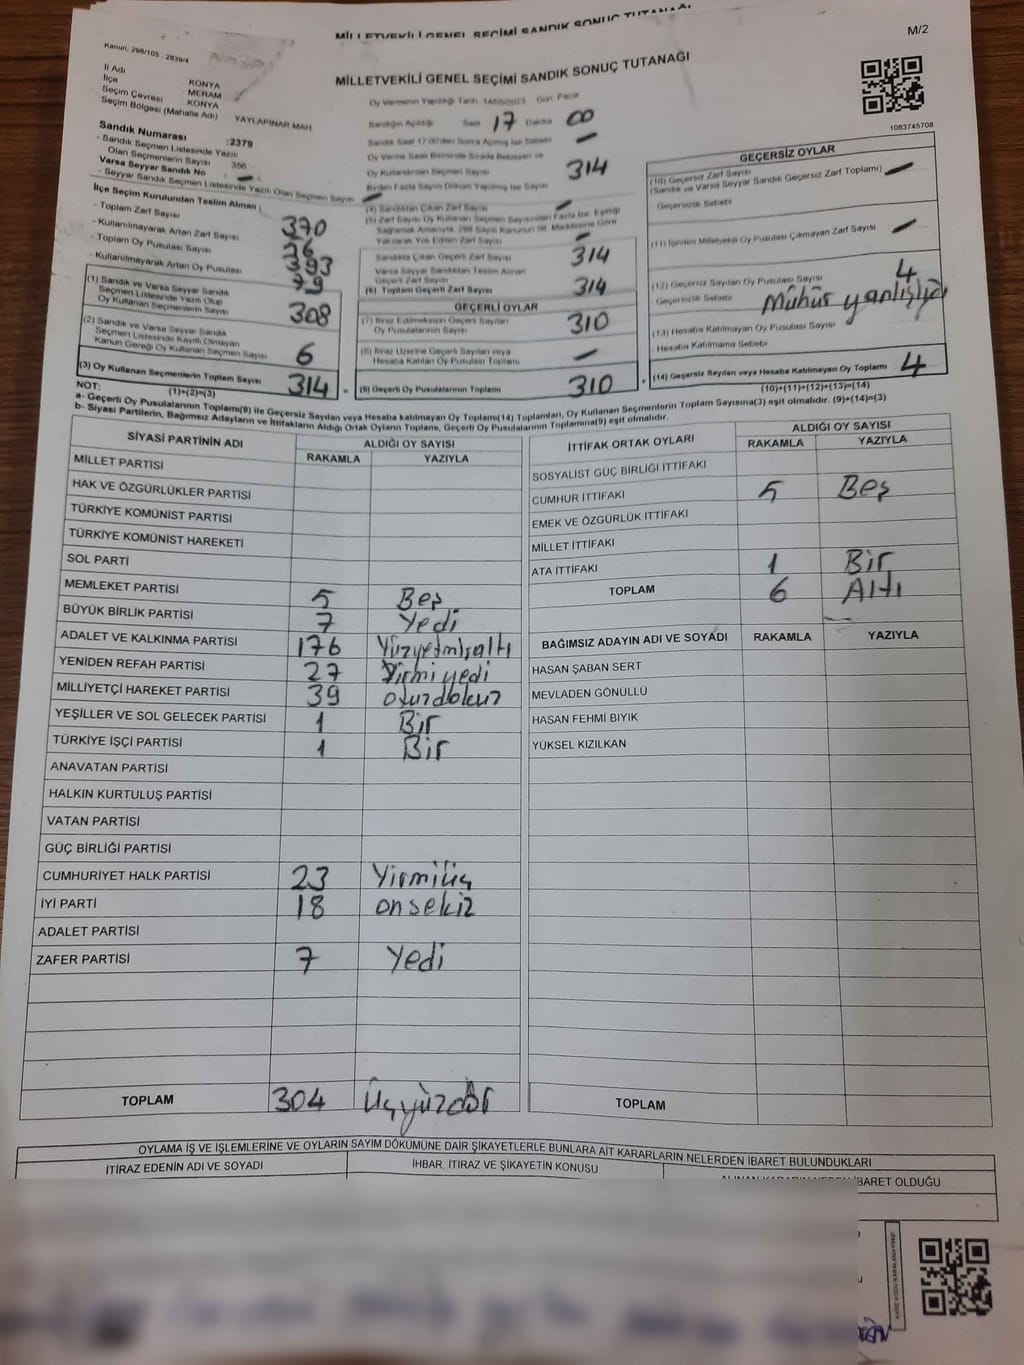 MİLLETVEKİLİ GENEL SEÇİMİ SANDIK SONUÇ TUTANAĞI
M/2
Kanun, 298/105 , 2839/4
MİLLETVEKİLİ GENEL SEÇİMİ SANDIK SONUÇ TUTANAĞI
İl Adı KONYA
İlçe MERAM
Seçim Çevresi KONYA
Seçim Bölgesi (Mahalle Adı) YAYLAPINAR MAH
Sandık Numarası :2379
- Sandık Seçmen Listesinde Yazılı
Olan Seçmenlerin Sayısı 356
Varsa Seyyar Sandık No : -
- Seyyar Sandık Seçmen Listesinde Yazılı Olan Seçmen Sayısı
İlçe Seçim Kurulundan Teslim Alınan ;
- Toplam Zarf Sayısı 370
- Kullanılmayarak Artan Zarf Sayısı
- Toplam Oy Pusulası Sayısı 393
- Kullanılmayarak Artan Oy Pusulası 79
(1) Sandık ve Varsa Seyyar Sandık
Seçmen Listesinde Yazılı Olup
Oy Kullanan Seçmenlerin Sayısı 308
(2) Sandık ve Varsa Seyyar Sandık
Seçmen Listesinde Kayıtlı Olmayan
Kanun Gereği Oy Kullanan Seçmen Sayısı 6
(3) Oy Kullanan Seçmenlerin Toplam Sayısı 314
(1)+(2)=(3)
Oy Vermenin Yapıldığı Tarih 14/05/2023 Gün Pazar
Sandığın Açıldığı Saat 17 Dakika 00
Sandık Saat 17.00'den Sonra Açılmış İse Sebebi -
Oy Verme Saati Bitiminde Sırada Bekleyen ve
Oy Kullandırılan Seçmen Sayısı 314
Birden Fazla Sayım Döküm Yapılmış İse Sayısı
(4) Sandıktan Çıkan Zarf Sayısı
(5) Zarf Sayısı Oy Kullanan Seçmen Sayısından Fazla İse, Eşitliği
Sağlamak Amacıyla, 298 Sayılı Kanunun 98. Maddesine Göre
Yakılarak Yok Edilen Zarf Sayısı -
Sandıkta Çıkan Geçerli Zarf Sayısı 314
Varsa Seyyar Sandıktan Teslim Alınan
Geçerli Zarf Sayısı
(6) Toplam Geçerli Zarf Sayısı 314
GEÇERLİ OYLAR
(7) İtiraz Edilmeksizin Geçerli Sayılan
Oy Pusulalarının Sayısı 310
(8) İtiraz Üzerine Geçerli Sayılan veya
Hesaba Katılan Oy Pusulası Toplamı -
(9) Geçerli Oy Pusulalarının Toplamı 310
1083745708
GEÇERSİZ OYLAR
(10) Geçersiz Zarf Sayısı
(Sandık ve Varsa Seyyar Sandık Geçersiz Zarf Toplamı) -
Geçersizlik Sebebi
(11) İçinden Milletvekili Oy Pusulası Çıkmayan Zarf Sayısı -
(12) Geçersiz Sayılan Oy Pusulası Sayısı 4
Geçersizlik Sebebi Mühür yanlışlığı
(13) Hesaba Katılmayan Oy Pusulası Sayısı
Hesaba Katılmama Sebebi
(14) Geçersiz Sayılan veya Hesaba Katılmayan Oy Toplamı 4
(10)+(11)+(12)+(13)=(14)
NOT:
a- Geçerli Oy Pusulalarının Toplamı(9) ile Geçersiz Sayılan veya Hesaba katılmayan Oy Toplamı(14) Toplamları, Oy Kullanan Seçmenlerin Toplam Sayısına(3) eşit olmalıdır. (9)+(14)=(3)
b- Siyasi Partilerin, Bağımsız Adayların ve İttifakların Aldığı Ortak Oyların Toplamı, Geçerli Oy Pusulalarının Toplamına(9) eşit olmalıdır.
SİYASİ PARTİNİN ADI ALDIĞI OY SAYISI
RAKAMLA YAZIYLA
MİLLET PARTİSİ
HAK VE ÖZGÜRLÜKLER PARTİSİ
TÜRKİYE KOMÜNİST PARTİSİ
TÜRKİYE KOMÜNİST HAREKETİ
SOL PARTİ
MEMLEKET PARTİSİ 5 Beş
BÜYÜK BİRLİK PARTİSİ 7 Yedi
ADALET VE KALKINMA PARTİSİ 176 Yüzyetmişaltı
YENİDEN REFAH PARTİSİ 27 Yirmiyedi
MİLLİYETÇİ HAREKET PARTİSİ 39 otuzdokuz
YEŞİLLER VE SOL GELECEK PARTİSİ 1 Bir
TÜRKİYE İŞÇİ PARTİSİ 1 Bir
ANAVATAN PARTİSİ
HALKIN KURTULUŞ PARTİSİ
VATAN PARTİSİ
GÜÇ BİRLİĞİ PARTİSİ
CUMHURİYET HALK PARTİSİ 23 Yirmiüç
İYİ PARTİ 18 onsekiz
ADALET PARTİSİ
ZAFER PARTİSİ 7 Yedi
TOPLAM 304 Üçyüzdör
İTTİFAK ORTAK OYLARI ALDIĞI OY SAYISI
RAKAMLA YAZIYLA
SOSYALİST GÜÇ BİRLİĞİ İTTİFAKI
CUMHUR İTTİFAKI 5 Beş
EMEK VE ÖZGÜRLÜK İTTİFAKI
MİLLET İTTİFAKI
ATA İTTİFAKI 1 Bir
TOPLAM 6 Altı
BAĞIMSIZ ADAYIN ADI VE SOYADI RAKAMLA YAZIYLA
HASAN ŞABAN SERT
MEVLADEN GÖNÜLLÜ
HASAN FEHMİ BIYIK
YÜKSEL KIZILKAN
TOPLAM
OYLAMA İŞ VE İŞLEMLERİNE VE OYLARIN SAYIM DÖKÜMÜNE DAİR ŞİKAYETLERLE BUNLARA AİT KARARLARIN NELERDEN İBARET BULUNDUKLARI
İTİRAZ EDENİN ADI VE SOYADI İHBAR, İTİRAZ VE ŞİKAYETİN KONUSU ALINAN KARARIN NEDEN İBARET OLDUĞU